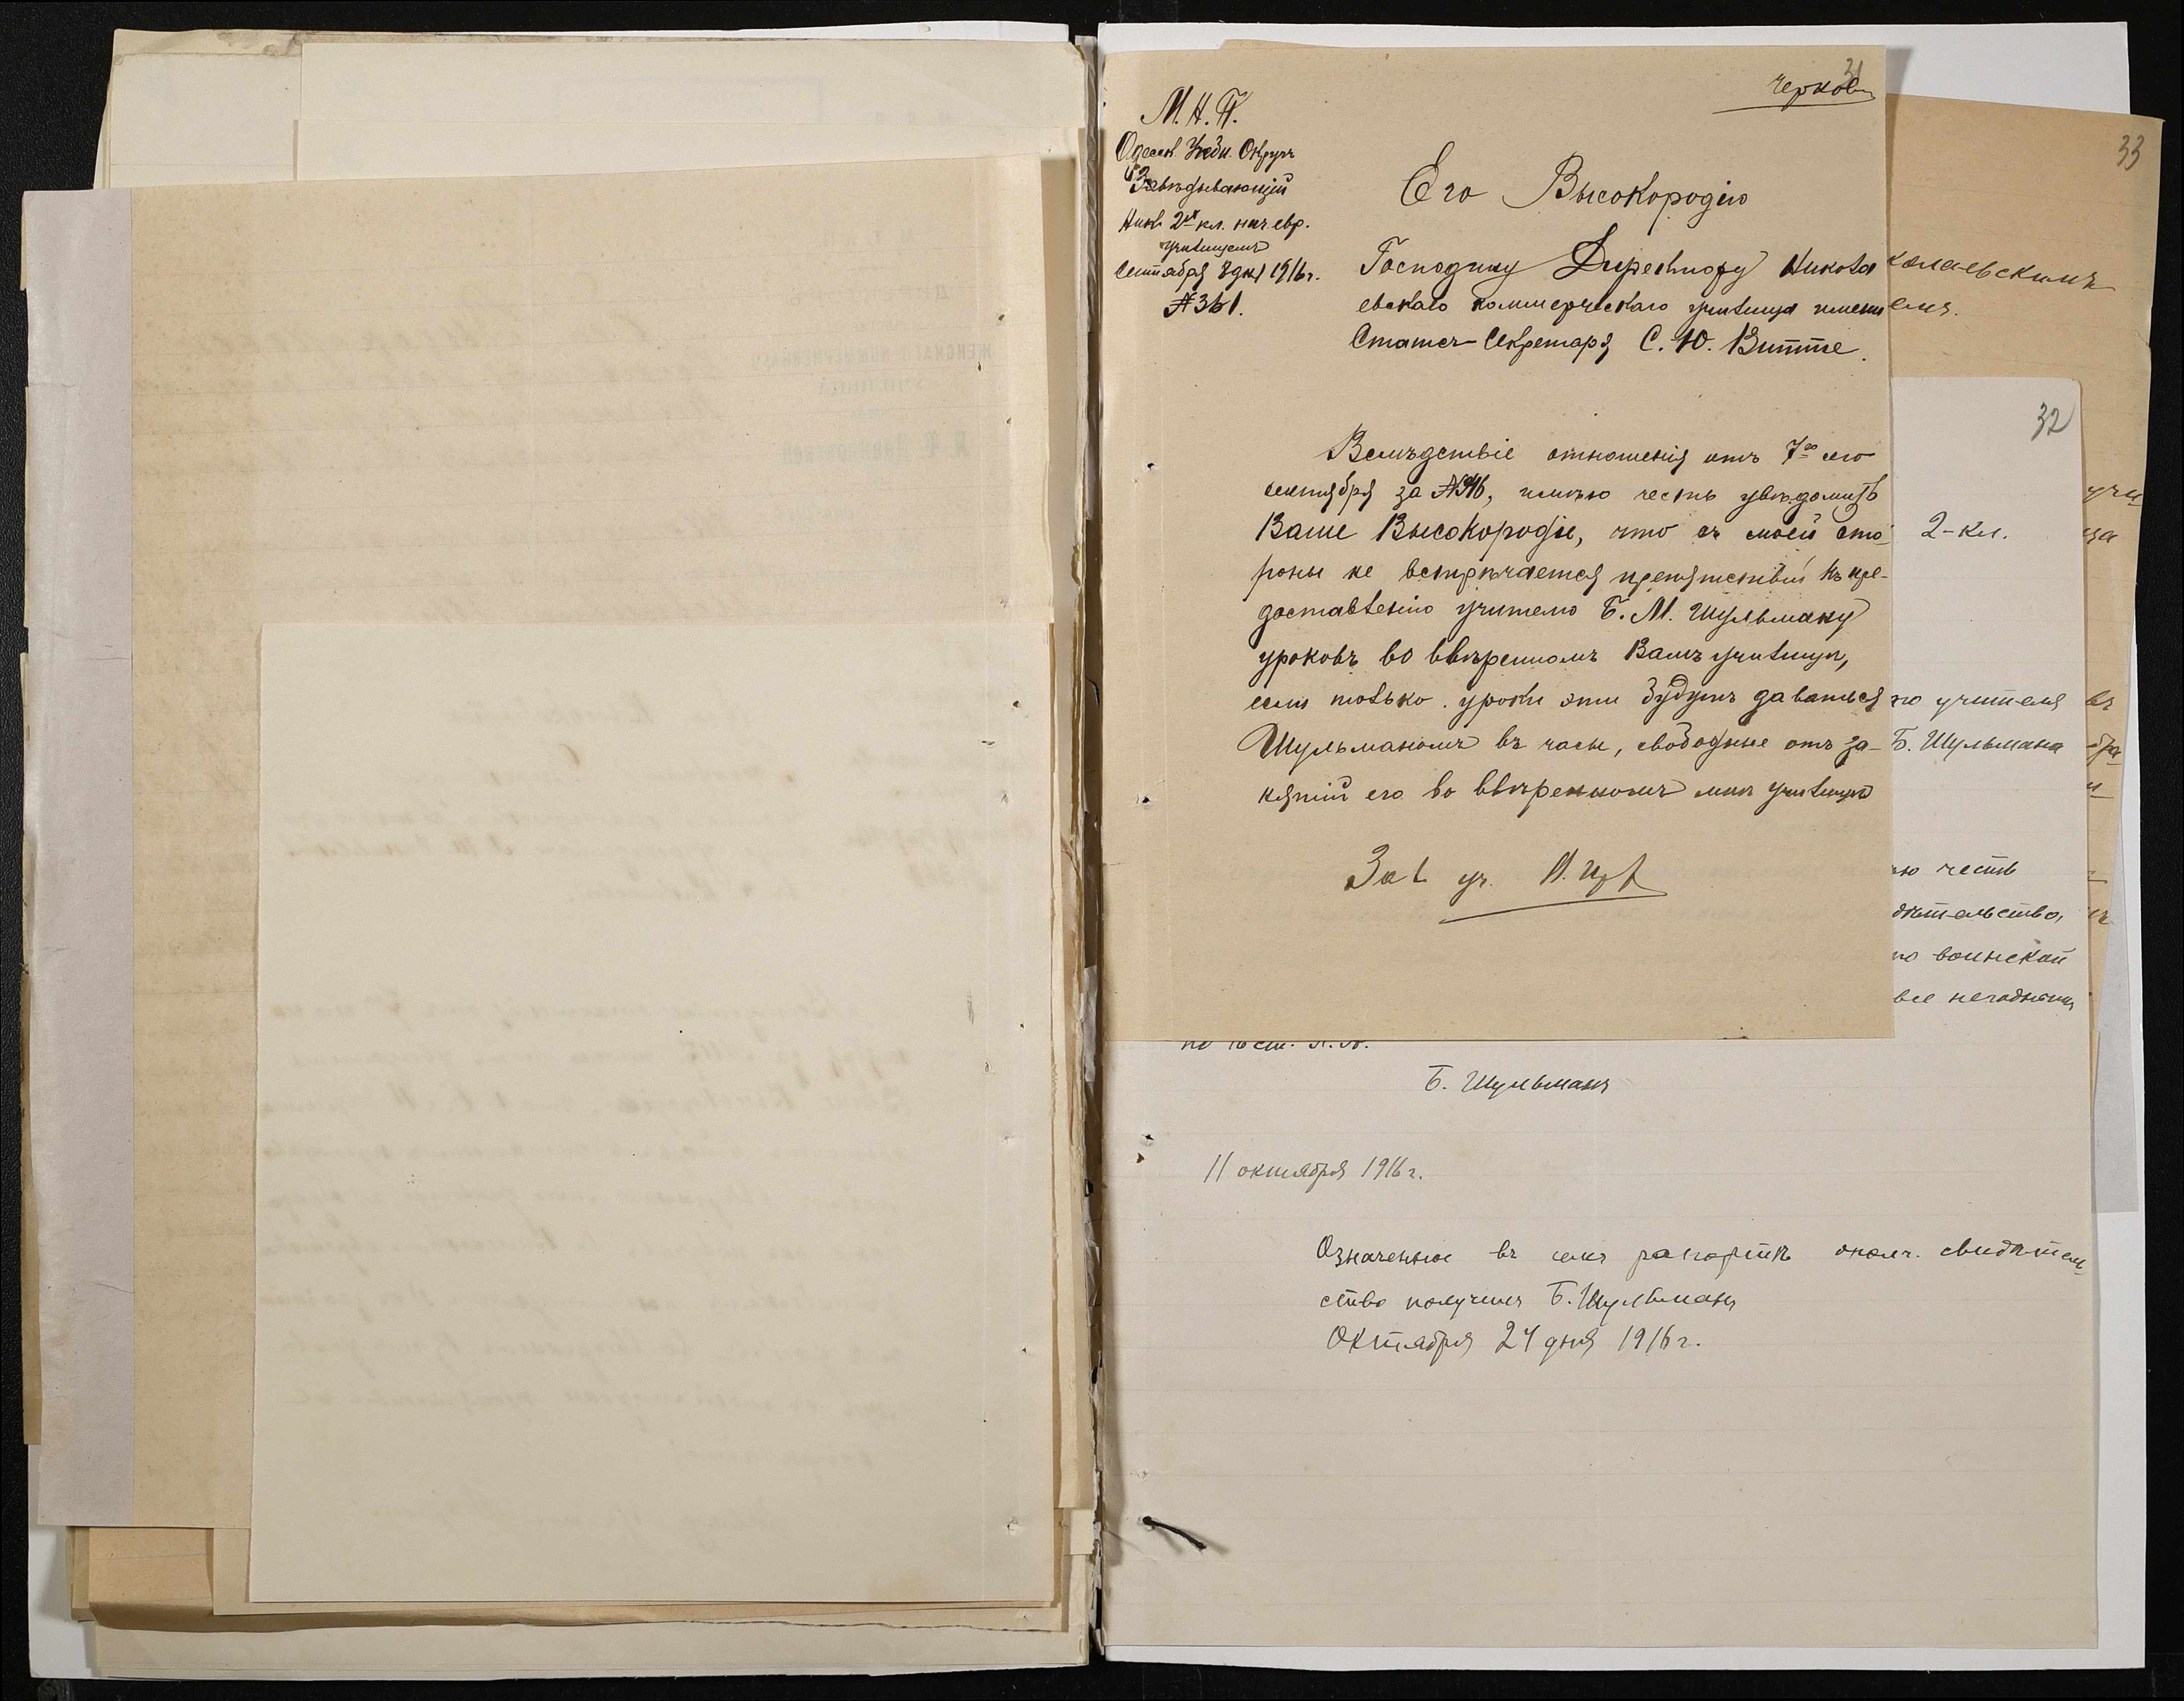 31
чернов
М. Н. П.
Одесск. Учебн. Округъ
Завѣдывающій
Ник. 2х кл. нач. евр.
училищемъ
Сентября 8 дня 1916 г.
№ 361.
Его Высокородію
Господину Директору Никола
евскаго коммерческаго училища имени
Статсъ-Секретаря С. Ю. Витте.
Вслѣдствіе отношенія отъ 7го сего
сентября за № 416, имѣю честь увѣдомить
Ваше Высокородіе, что съ моей сто-
роны не встрѣчается препятствій къ пре-
доставленію учителю Б. М. Шульману
уроковъ во ввѣренномъ Вамъ училищѣ,
если только уроки эти будутъ даваться
Шульманомъ въ часы, свободные отъ за-
нятій его во ввѣренномъ мнѣ училищѣ
Зав уч.
33
колаевскимъ
32
2-кл.
учи
ща
го учителя
въ
Б. Шульмана
бра-
ю честь
дѣтельство,
по воинской
все негоднымъ
Б. Шульманъ
11 октября 1916 г.
Означенное въ семъ рапортѣ ополч. свидѣтель-
ство получилъ Б. Шульманъ
Октября 24 дня 1916 г.